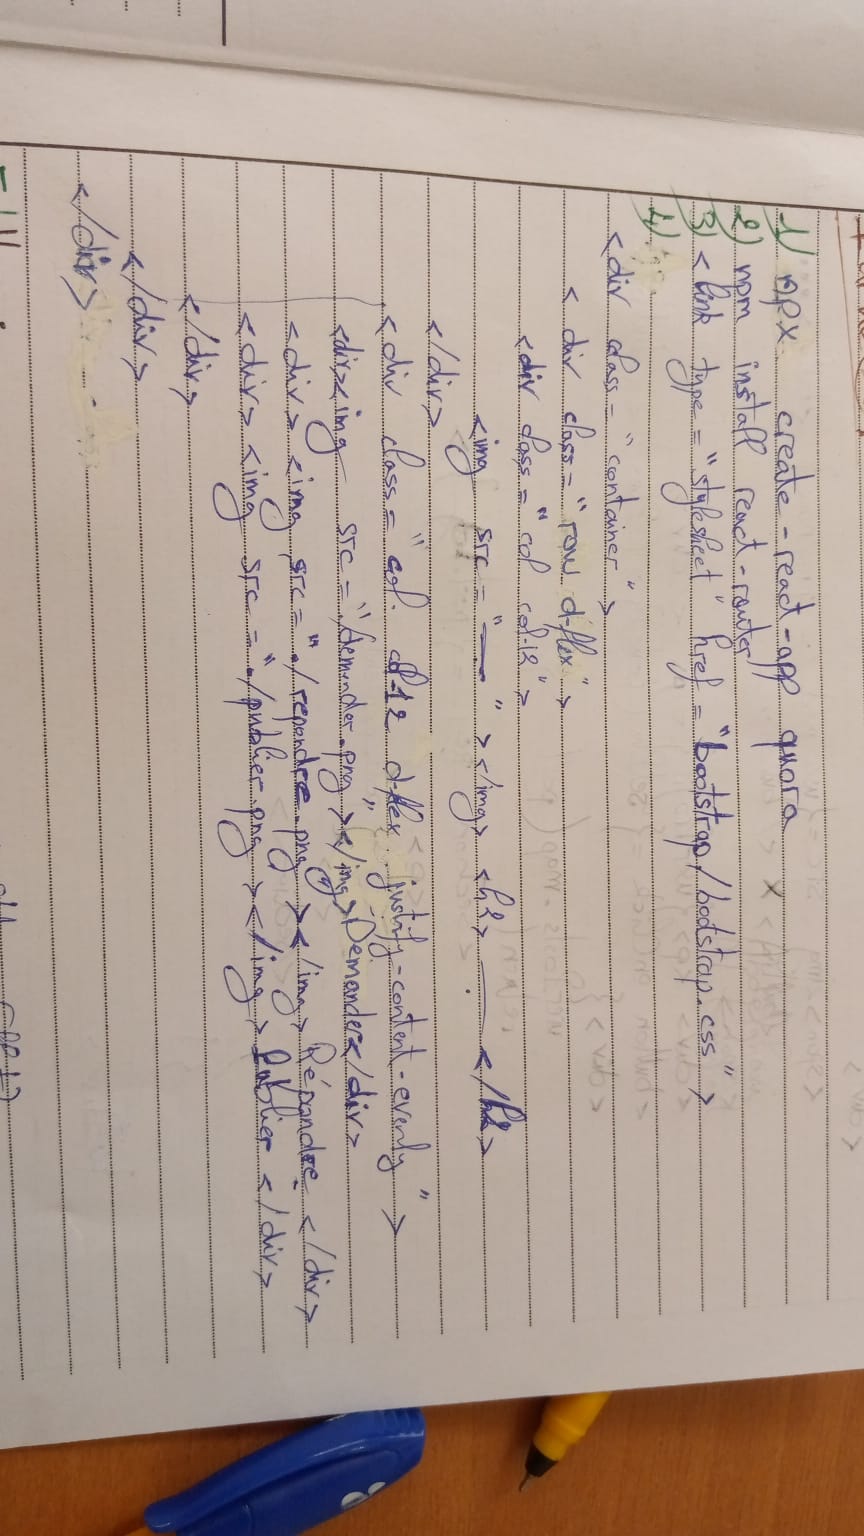 1) npx create-react-app quora
2) npm install react-router
3) <link type="stylesheet" href="bootstrap/bootstrap.css">
4)
<div class="container">
<div class="row d-flex">
<div class="col col-12">
<img src="——"></img> <h2> —— </h2>
</div>
<div class="col. col-12 d-flex justify-content-evenly">
<div><img src="./demander.png"></img>Demander</div>
<div> <img src="./repondre.png"></img> Répondre </div>
<div> <img src="./publier.png"></img> Publier </div>
</div>
</div>
</div>